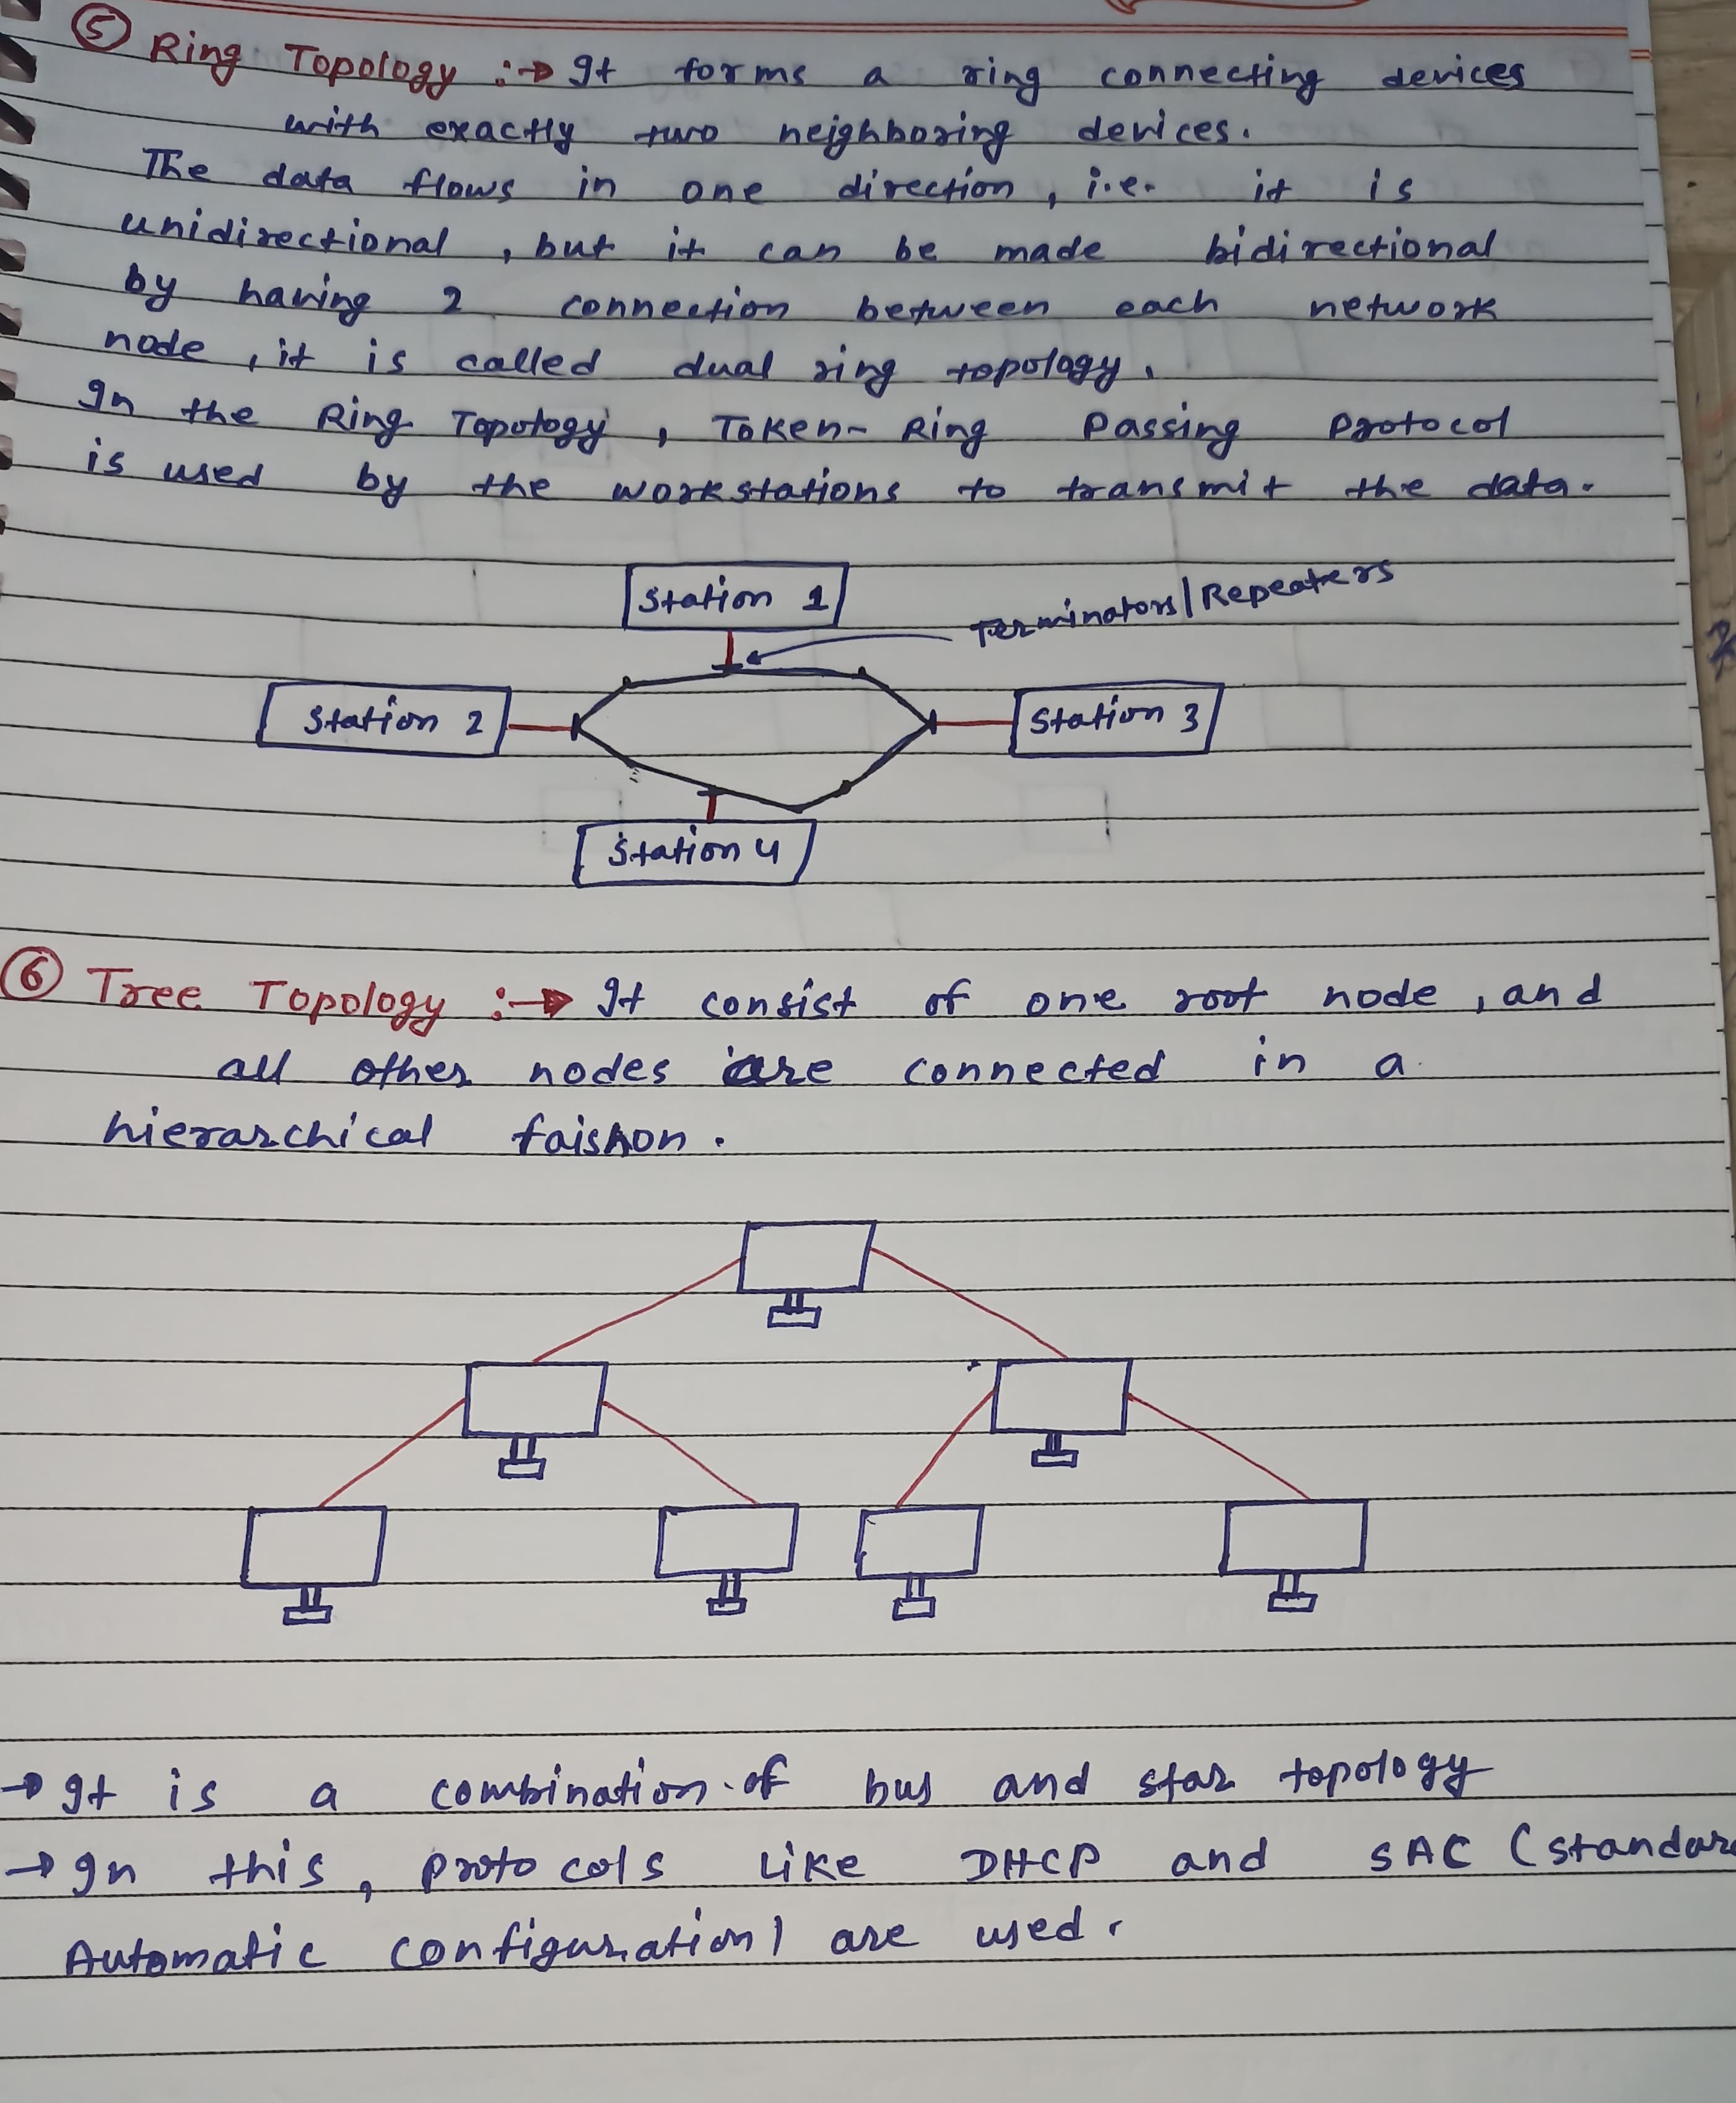 5 Ring Topology :→ It forms a ring connecting devices
with exactly two neighboring devices.
The data flows in one direction, i.e. it is
unidirectional, but it can be made bidirectional
by having 2 connection between each network
node, it is called dual ring topology.
In the Ring Topology, Token-Ring Passing Protocol
is used by the workstations to transmit the data.
Station 1
Terminators/Repeaters
Station 2
Station 3
Station 4
6 Tree Topology :→ It consist of one root node, and
all other nodes are connected in a
hierarchical faishon.
→ It is a combination of bus and star topology
→ In this, protocols like DHCP and SAC (standar
Automatic configuration) are used.